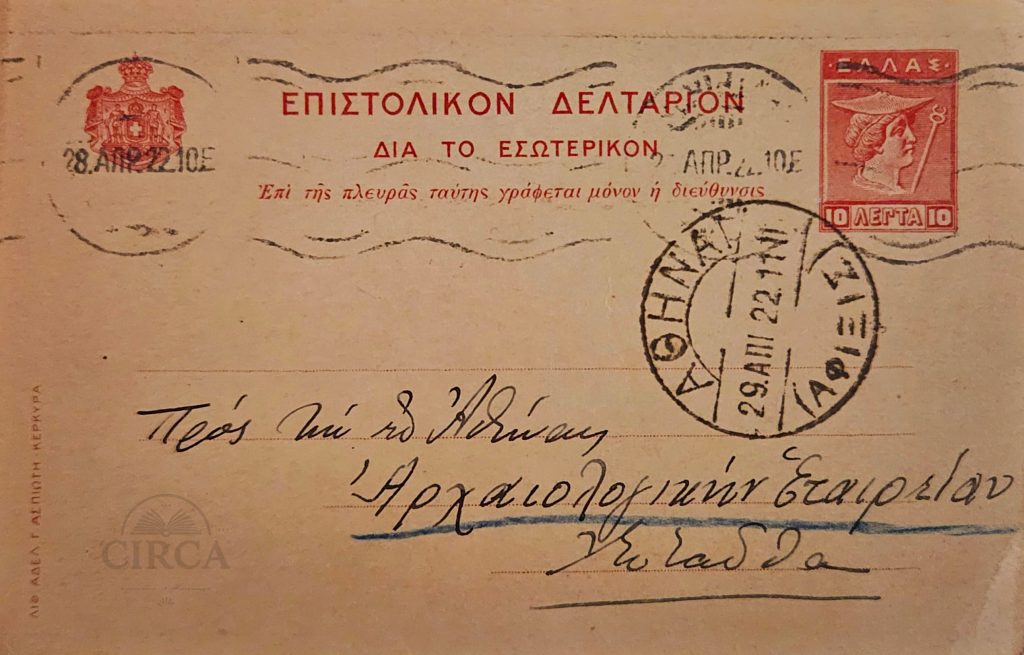 ΕΛΛΑΣ
ΕΠΙΣΤΟΛΙΚΟΝ ΔΕΛΤΑΡΙΟΝ
ΔΙΑ ΤΟ ΕΣΩΤΕΡΙΚΟΝ
Ἐπὶ τῆς πλευρᾶς ταύτης γράφεται μόνον ἡ διεύθυνσις
28.ΑΠΡ.22.10Σ
ΑΠΡ.22.10Σ
10 ΛΕΠΤΑ 10
ΑΘΗΝΑΙ
29.ΑΠΙ 22.11
(ΑΦΙΞΙΣ)
Πρός τὴν ἐν Ἀθήναις
Ἀρχαιολογικήν Ἑταιρείαν
Ἐνταῦθα
ΛΙΘ. ΑΔΕΛ. Γ. ΑΣΠΙΩΤΗ ΚΕΡΚΥΡΑ
CIRCA